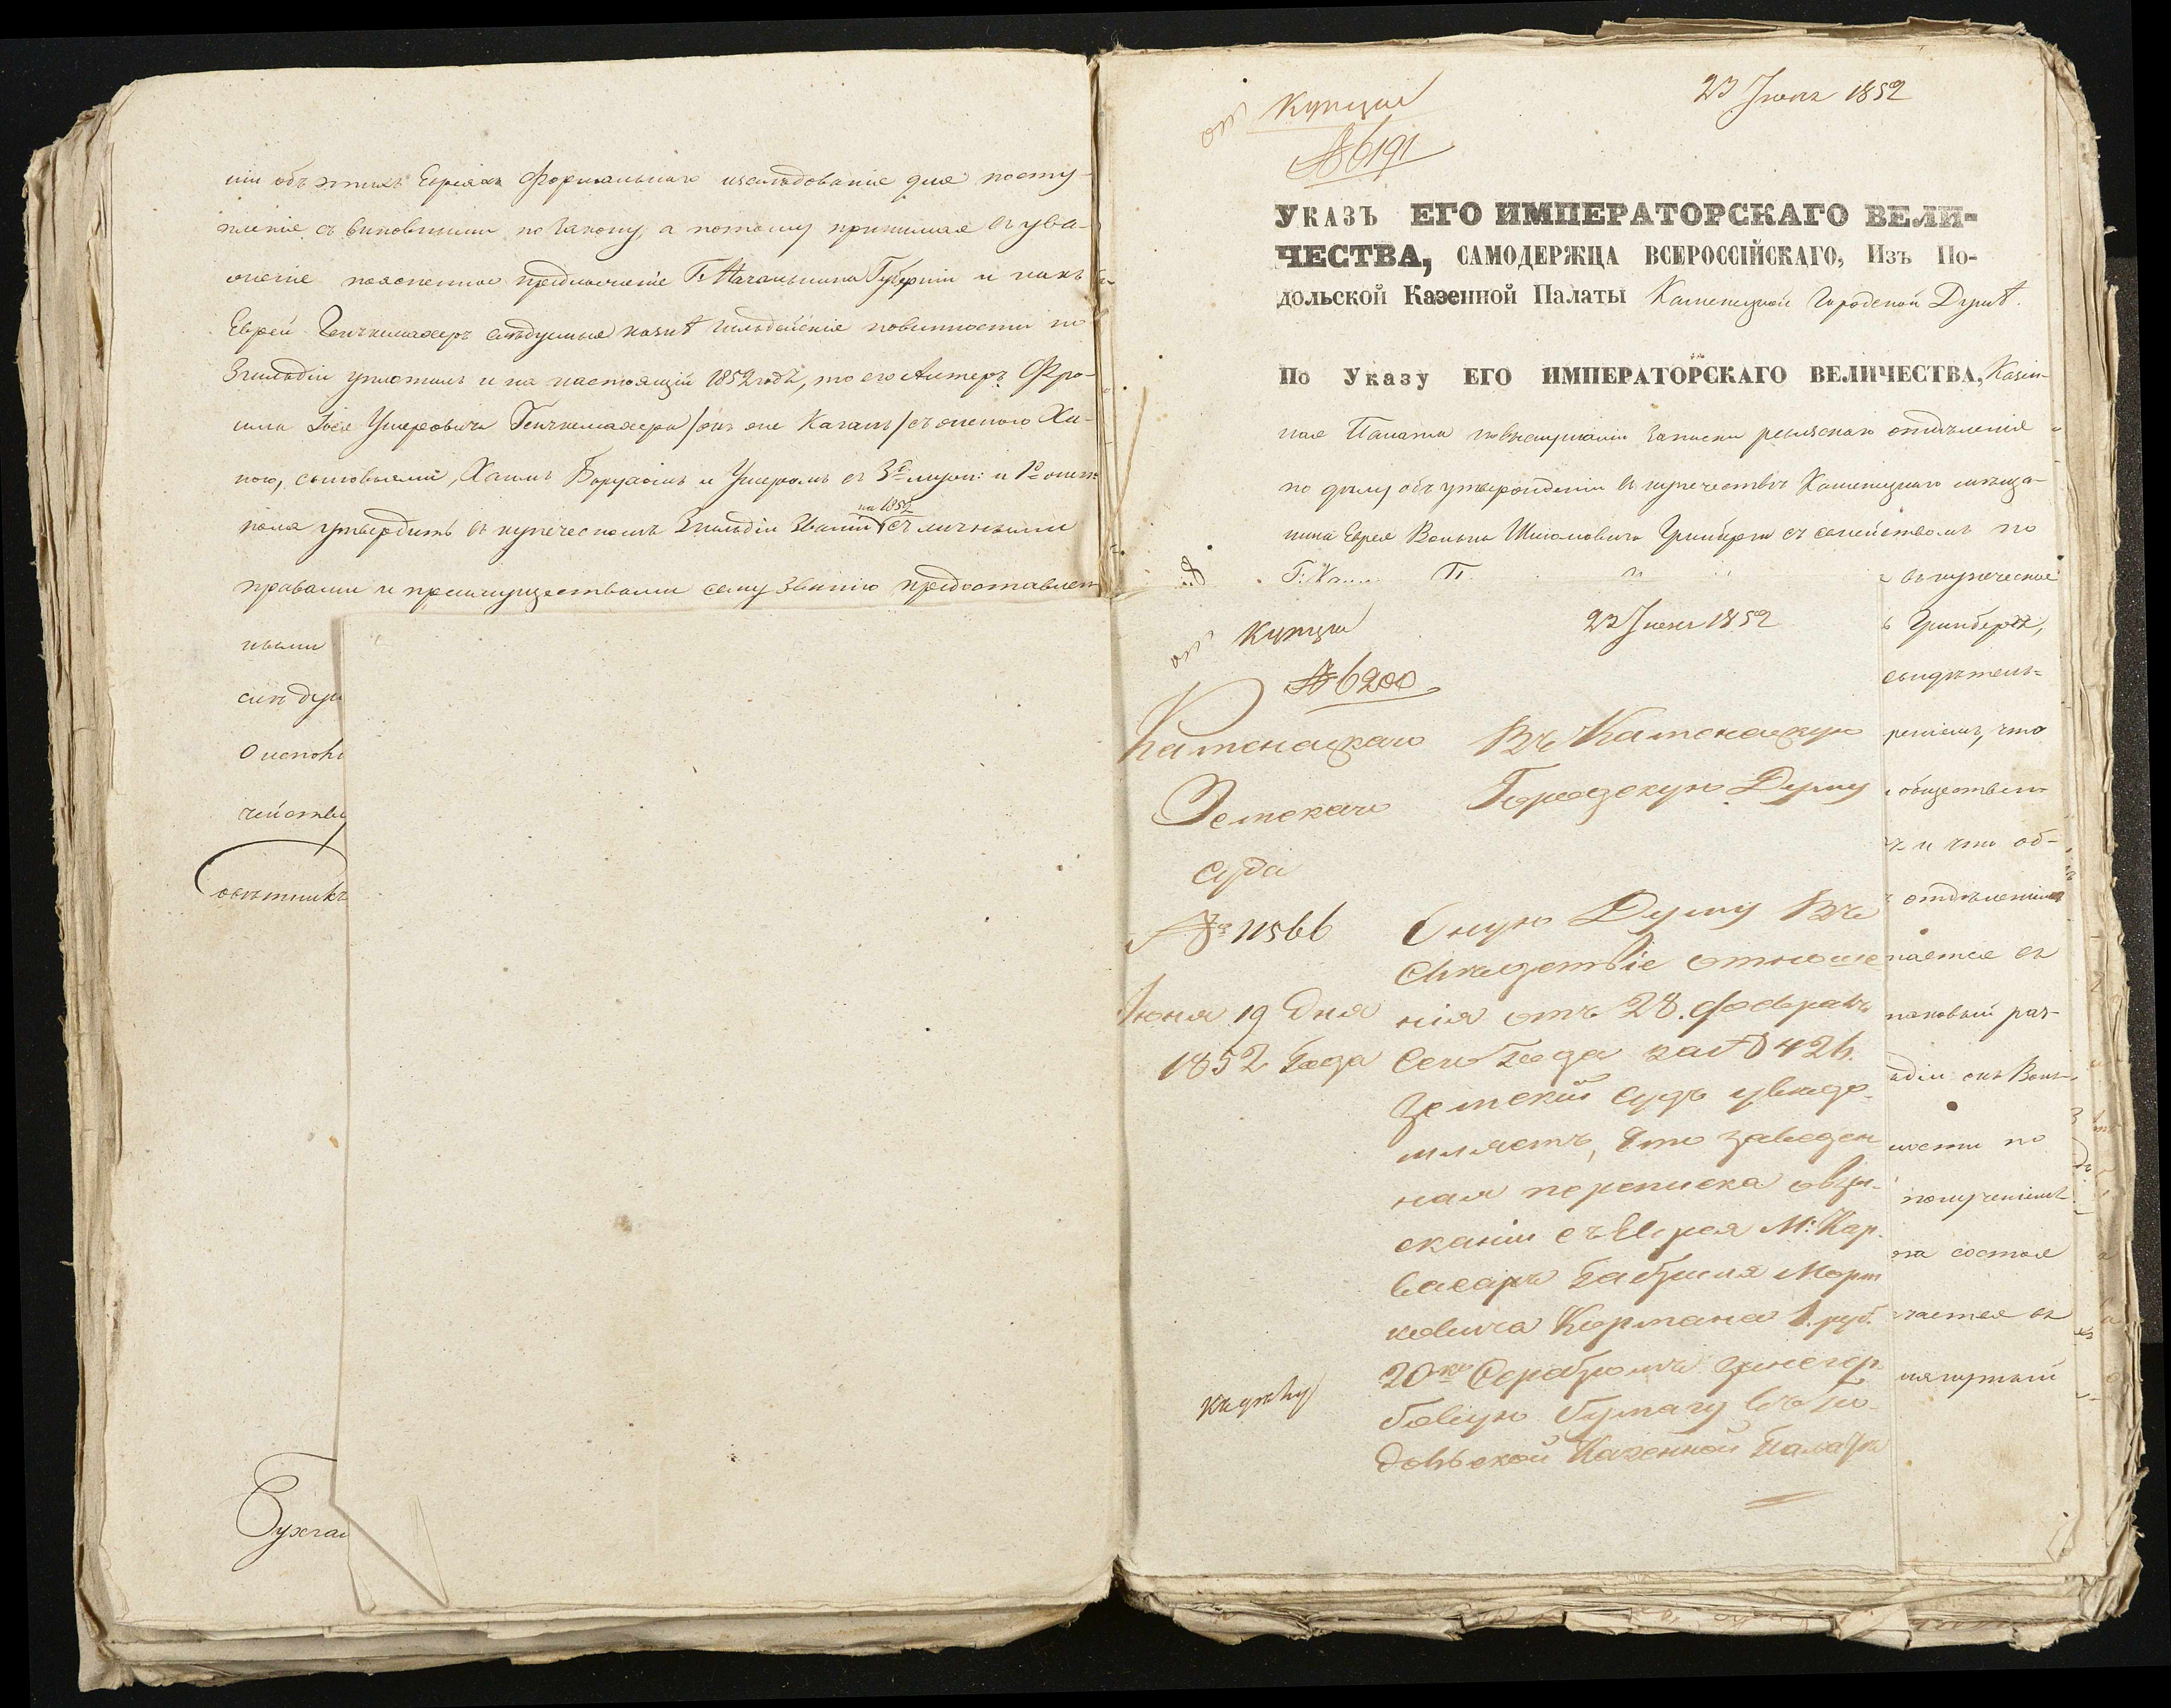 ніи объ этихъ Евреяхъ формальнаго изслѣдованія для посту-
пленія съ виновными по закону, а потому принимая въ ува-
женіе поясненное предложеніе Г. Начальника Губерніи и какъ
Еврей слѣдуемыя казнѣ гильдейскія повинности по
3 гильдіи уплотилъ и на настоящій 1852 годъ, то его Фро-
има Іося Умеровича онъ же Каганъ съ женою Хи-
ною, сыновьями, Хаимъ Борухомъ и Умеромъ съ 3й мужс: и 1й женск:
на 1852
пола утвердить въ купеческомъ 3 гильдіи званіи съ личными
правами и преимуществами сему званію предоставлен
ными
слѣдую
О исполн
чейству
овѣтникъ
Бухгал
23 Іюня 1852
от Купции
№ 6191
Указъ ЕГО ИМПЕРАТОРСКАГО ВЕЛИ-
ЧЕСТВА, САМОДЕРЖЦА ВСЕРОССІЙСКАГО, Изъ По-
дольской Казенной Палаты Каменецкой Городской Думѣ.
По Указу ЕГО ИМПЕРАТОРСКАГО ВЕЛИЧЕСТВА, Казен-
ная Палата по выслушаніи записки ревизскаго отдѣленія
по дѣлу объ утвержденіи въ купечествѣ Каменецкаго мѣща-
нина Еврея Волька Шиомовича Гринберга съ семействомъ по
въ купеческое
ъ Гринберга,
свидѣтель-
реніемъ, что
обществен
ъ и что об-
отдѣленія
чается съ
таковый раз-
ьдіи онъ Воль-
ности по
полученіемъ
та состоя
чается въ
мянутый
23 Іюня 1852
от Купции
№ 6200
Каменецкаго
Земскаго
Суда
№ 11566
Іюня 19 дня
1852 Года
Въ Каменецкую
Городскую Думу
Оную Думу Въ
Слѣдствіе отноше
нія отъ 28. февраля
Сего Года за № 426.
Земскій Судъ увѣдо-
мляетъ, что заведен
ная переписка о взы-
сканіи съ Еврея М: Жар-
Габріеля Морт
ковича Кормана 1. руб.
20 ко Серебромъ за негер-
бовую бумагу въ По-
дольской Казенной Палатѣ